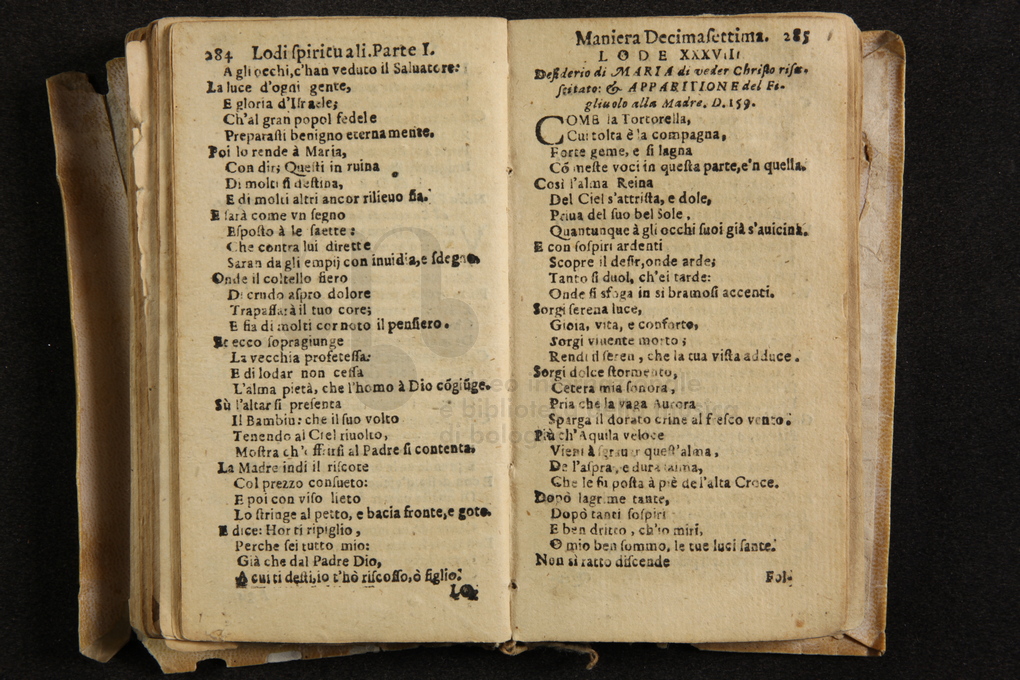 284 Lodi ſpirituali. Parte I.
A gli occhi, c'han veduto il Saluatore:
La luce d'ogni gente,
E gloria d'Iſraele;
Ch'al gran popol fedele
Preparaſti benigno eternamente.
Poi lo rende à Maria,
Con dir; Queſti in ruina
Di molti ſi deſtina,
E di molti altri ancor rilieuo fia.
E ſarà come vn ſegno
Eſpoſto à le ſaette:
Che contra lui dirette
Saran da gli empij con inuidia, e ſdegno.
Onde il coltello fiero
Di crudo aſpro dolore
Trapaſſarà il tuo core;
E fia di molti cor noto il penſiero.
Et ecco ſopragiunge
La vecchia profeteſſa:
E di lodar non ceſſa
L'alma pietà, che l'homo à Dio cõgiũge.
Sù l'altar ſi preſenta
Il Bambin: che il ſuo volto
Tenendo al Ciel riuolto,
Moſtra ch'offrirſi al Padre ſi contenta.
La Madre indi il riſcote
Col prezzo conſueto:
E poi con viſo lieto
Lo ſtringe al petto, e bacia fronte, e gote.
E dice: Hor ti ripiglio,
Perche ſei tutto mio:
Già che dal Padre Dio,
A cui ti deſtinò t'hò riſcoſſo, ò figlio.
LO-
Maniera Decimaſettima. 285
LODE XXXVIII
Deſiderio di MARIA di veder Chriſto riſu-
ſcitato: & APPARITIONE del Fi-
gliuolo alla Madre. D. 159.
COME la Tortorella,
Cui tolta è la compagna,
Forte geme, e ſi lagna
Cõ meſte voci in queſta parte, e'n quella.
Così l'alma Reina
Del Ciel s'attriſta, e dole,
Priua del ſuo bel Sole,
Quantunque à gli occhi ſuoi già s'auicina.
E con ſoſpiri ardenti
Scopre il deſir, onde arde;
Tanto ſi duol, ch'ei tarde:
Onde ſi sfoga in sì bramoſi accenti.
Sorgi ſerena luce,
Gioia, vita, e conforto,
Sorgi viuente morto;
Rendi il ſeren, che la tua viſta adduce.
Sorgi dolce ſtormento,
Cetera mia ſonora,
Pria che la vaga Aurora
Sparga il dorato crine al freſco vento.
Più ch'Aquila veloce
Vieni à ſgrauar queſt'alma,
De l'aſpra, e dura ſalma,
Che le fù poſta à piè de l'alta Croce.
Dopò lagrime tante,
Dopò tanti ſoſpiri
E ben dritto, ch'io miri,
O mio ben ſommo, le tue luci ſante.
Non sì ratto diſcende
Fol-